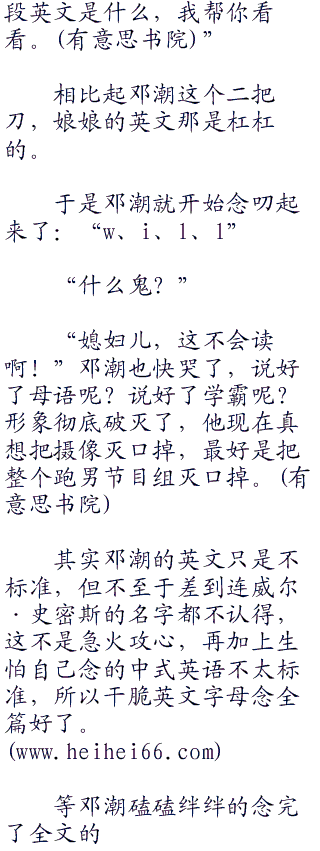 段英文是什么，我帮你看
看。(有意思书院)”
相比起邓潮这个二把
刀，娘娘的英文那是杠杠
的。
于是邓潮就开始念叨起
来了：“w、i、l、l”
“什么鬼？”
“媳妇儿，这不会读
啊！”邓潮也快哭了，说好
了母语呢？说好了学霸呢？
形象彻底破灭了，他现在真
想把摄像灭口掉，最好是把
整个跑男节目组灭口掉。(有
意思书院)
其实邓潮的英文只是不
标准，但不至于差到连威尔
·史密斯的名字都不认得，
这不是急火攻心，再加上生
怕自己念的中式英语不太标
准，所以干脆英文字母念全
篇好了。
(www.heihei66.com)
等邓潮磕磕绊绊的念完
了全文的